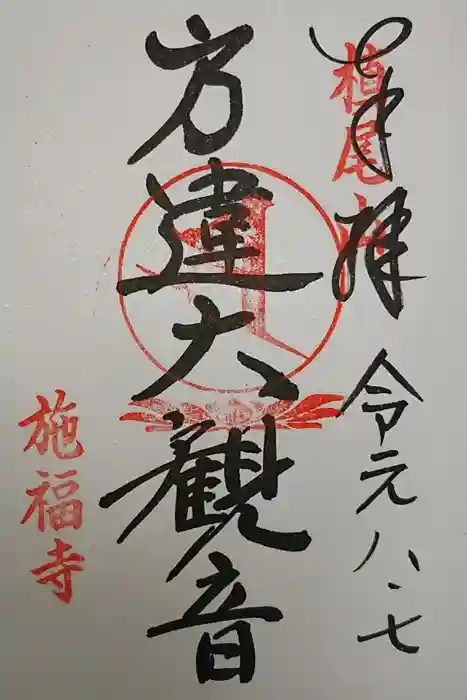 奉拝
槙尾山
令元八、七
方違大観音
施福寺